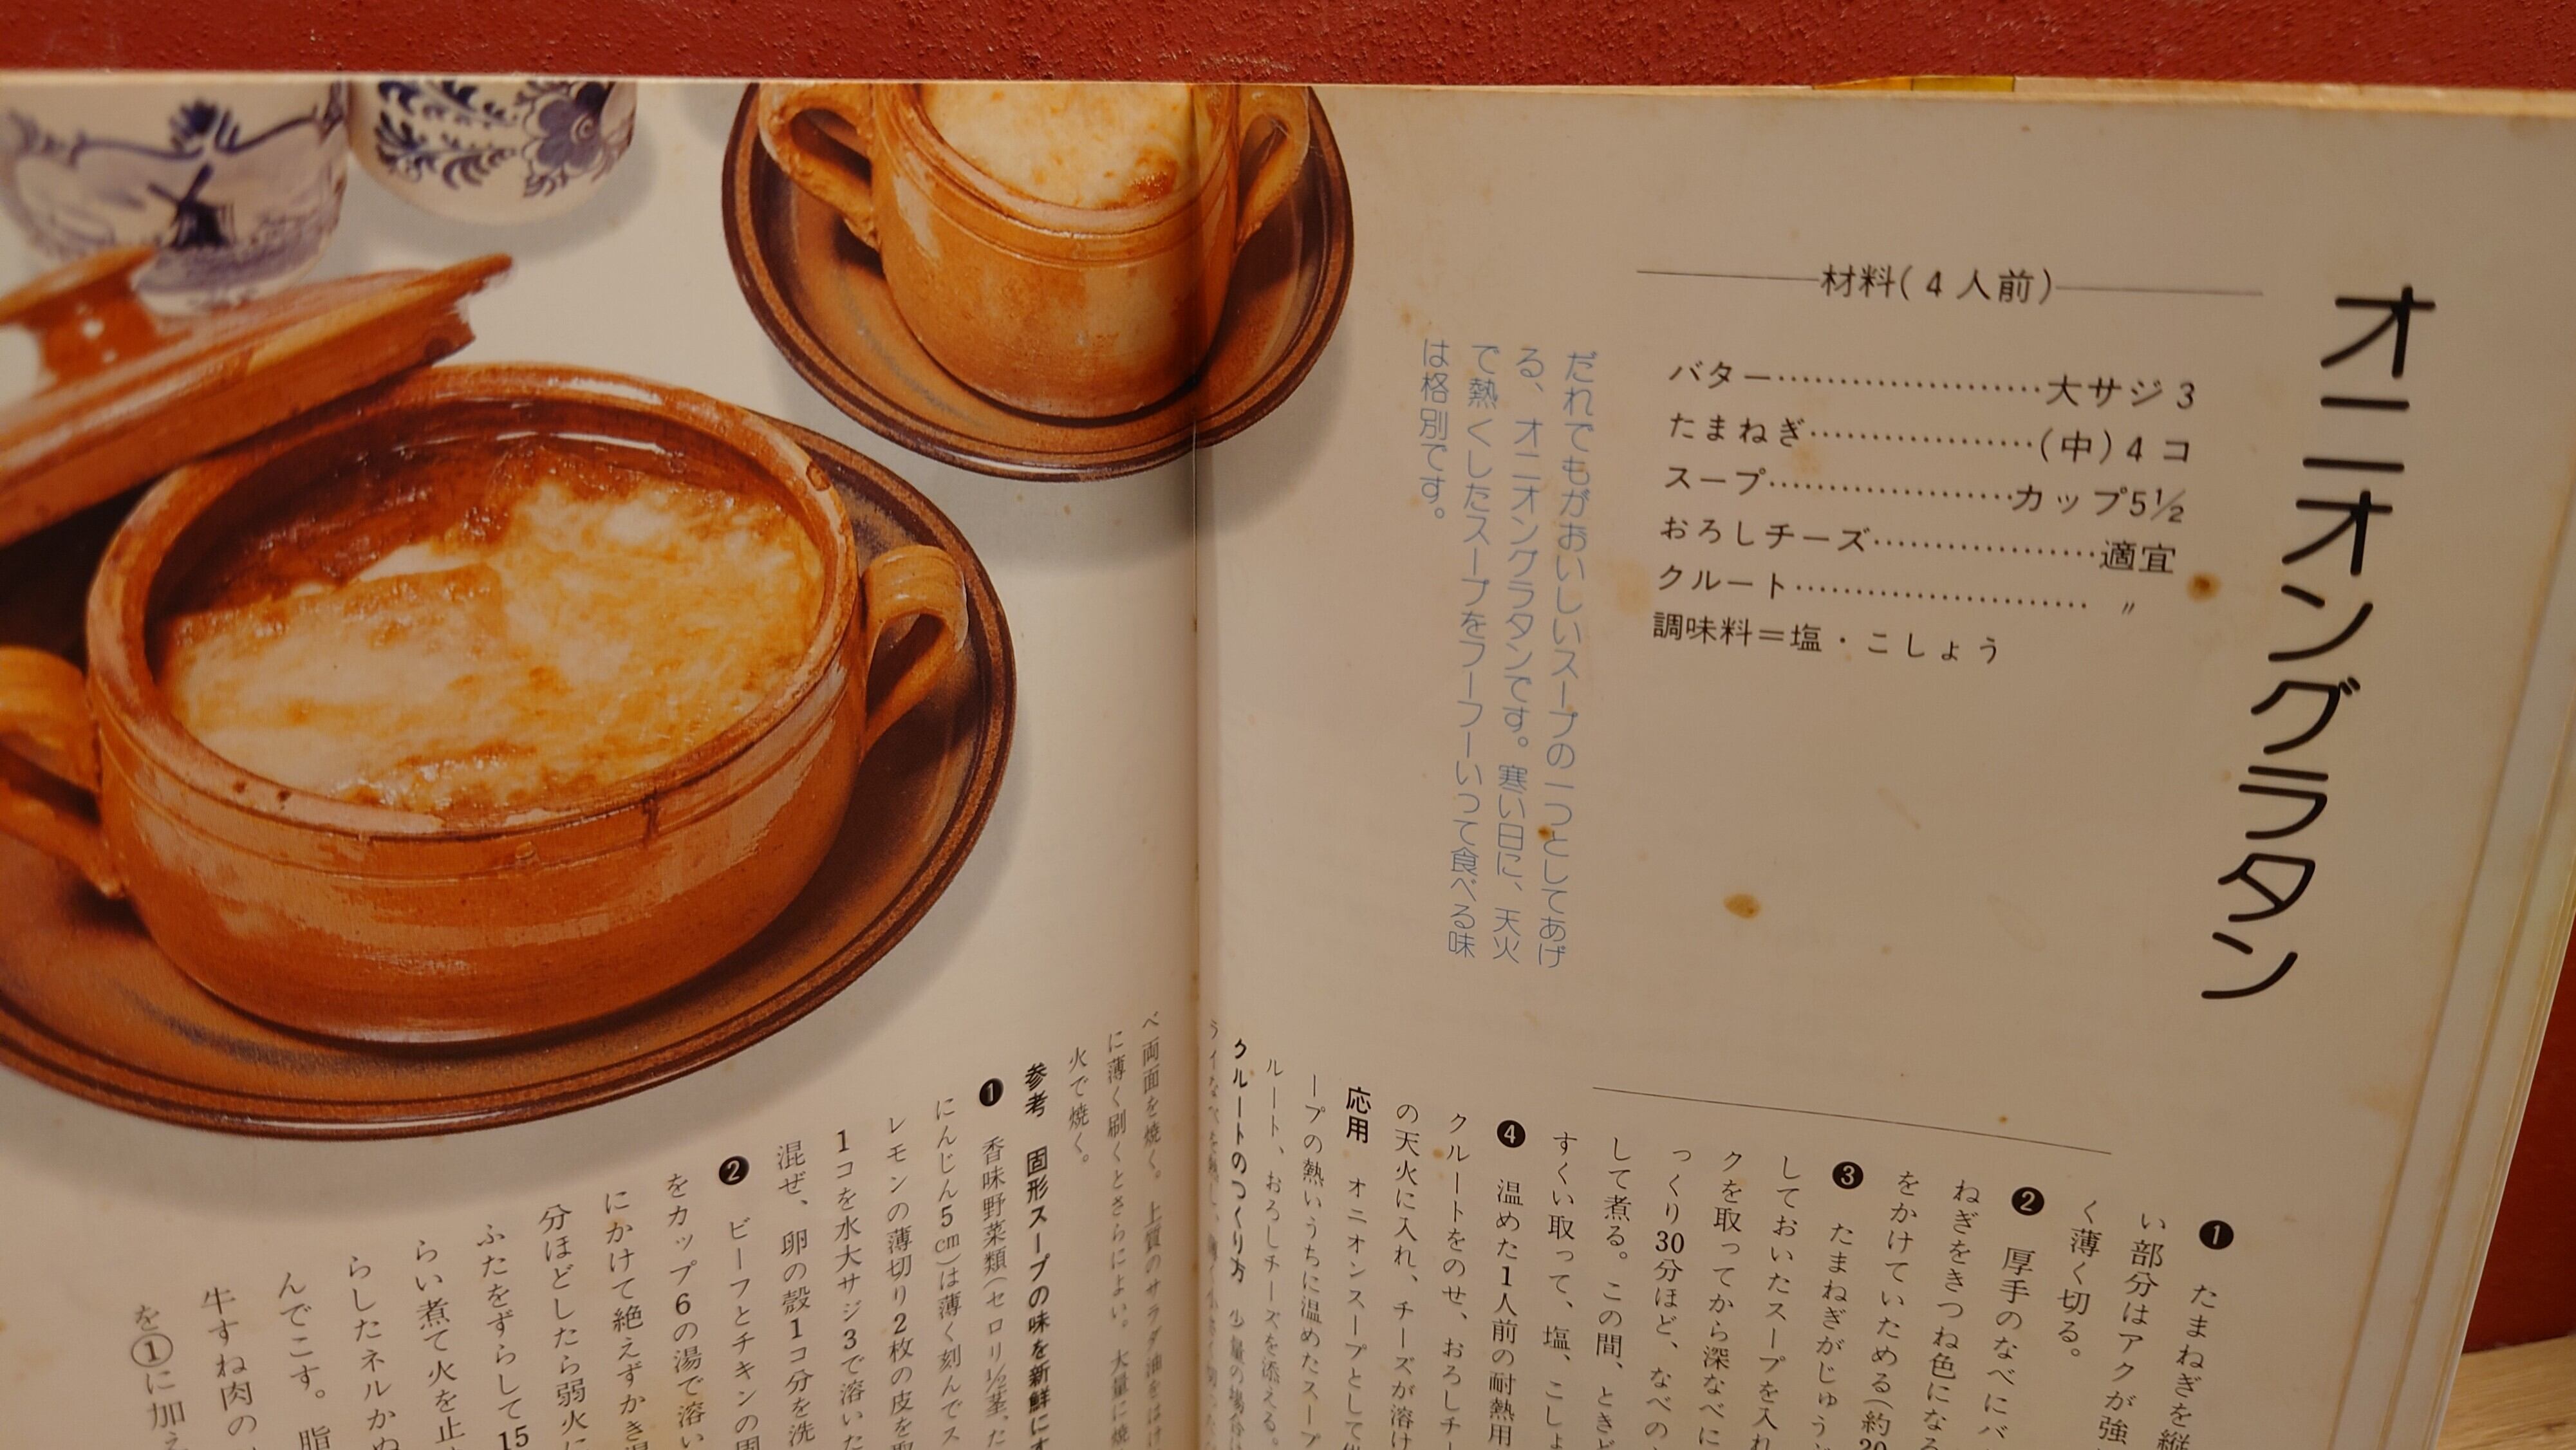 オニオングラタン
材料(4人前)
バター…………………大サジ3
たまねぎ………………(中)4コ
スープ…………………カップ5½
おろしチーズ………………適宜
クルート……………………〃
調味料=塩・こしょう
だれでもがおいしいスープの一つとしてあげ
る、オニオングラタンです。寒い日に、天火
で熱くしたスープをフーフーいって食べる味
は格別です。
❶ たまねぎを縦
い部分はアクが強
く薄く切る。
❷ 厚手のなべにバ
ねぎをきつね色になる
をかけていためる(約20
❸ たまねぎがじゅう
しておいたスープを入れ
クを取ってから深なべに
っくり30分ほど、なべの
して煮る。この間、ときど
すくい取って、塩、こしょ
❹ 温めた1人前の耐熱用
クルートをのせ、おろしチー
の天火に入れ、チーズが溶け
応用 オニオンスープとして供
ープの熱いうちに温めたスープ
ルート、おろしチーズを添える。
クルートのつくり方 少量の場合は
べ両面を焼く。上質のサラダ油をはけ
に薄く刷くとさらによい。大量に焼
火で焼く。
参考 固形スープの味を新鮮にす
❶ 香味野菜類(セロリ½茎、た
にんじん5cm)は薄く刻んでス
レモンの薄切り2枚の皮を取
1コを水大サジ3で溶いた
混ぜ、卵の殻1コ分を洗
❷ ビーフとチキンの固
をカップ6の湯で溶い
にかけて絶えずかき混
分ほどしたら弱火に
ふたをずらして15
らい煮て火を止
らしたネルかぬ
んでこす。脂
牛すね肉の
を①に加え